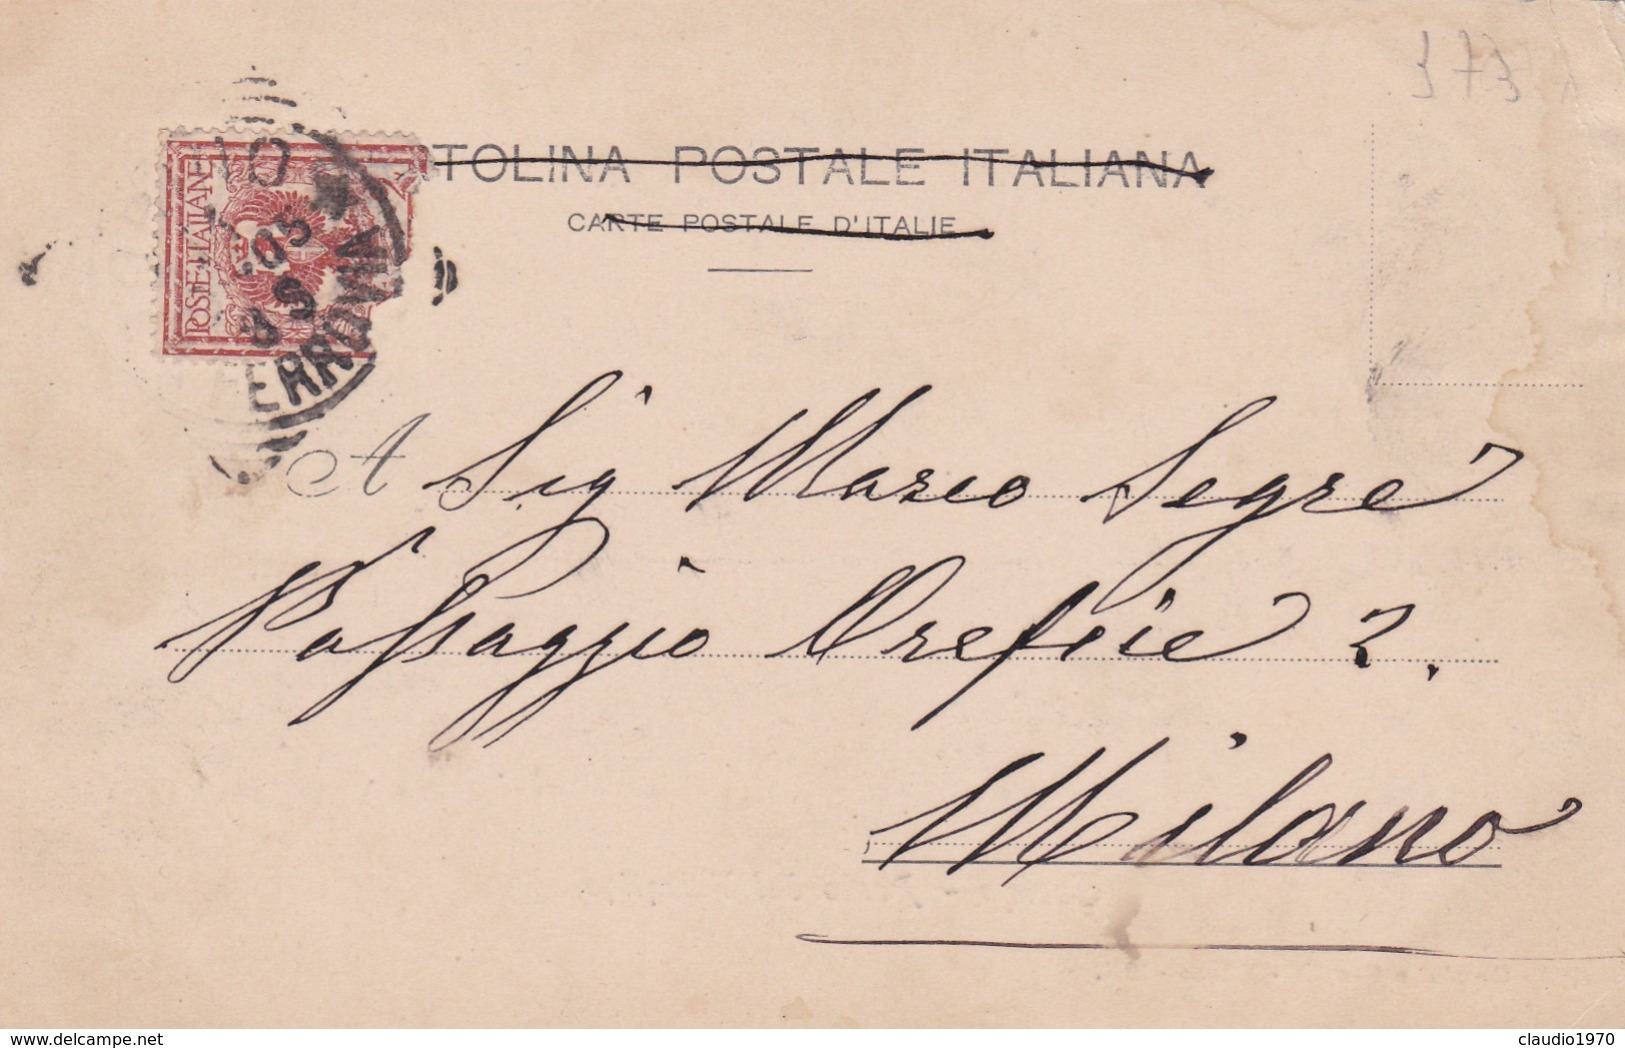 373
TOLINA POSTALE ITALIANA
CARTE POSTALE D'ITALIE
POSTE ITALIANE
10
05
FERROVIA
A Sig Marco Segre
Passaggio Orefice 2.
Milano
www.delcampe.net
claudio1970